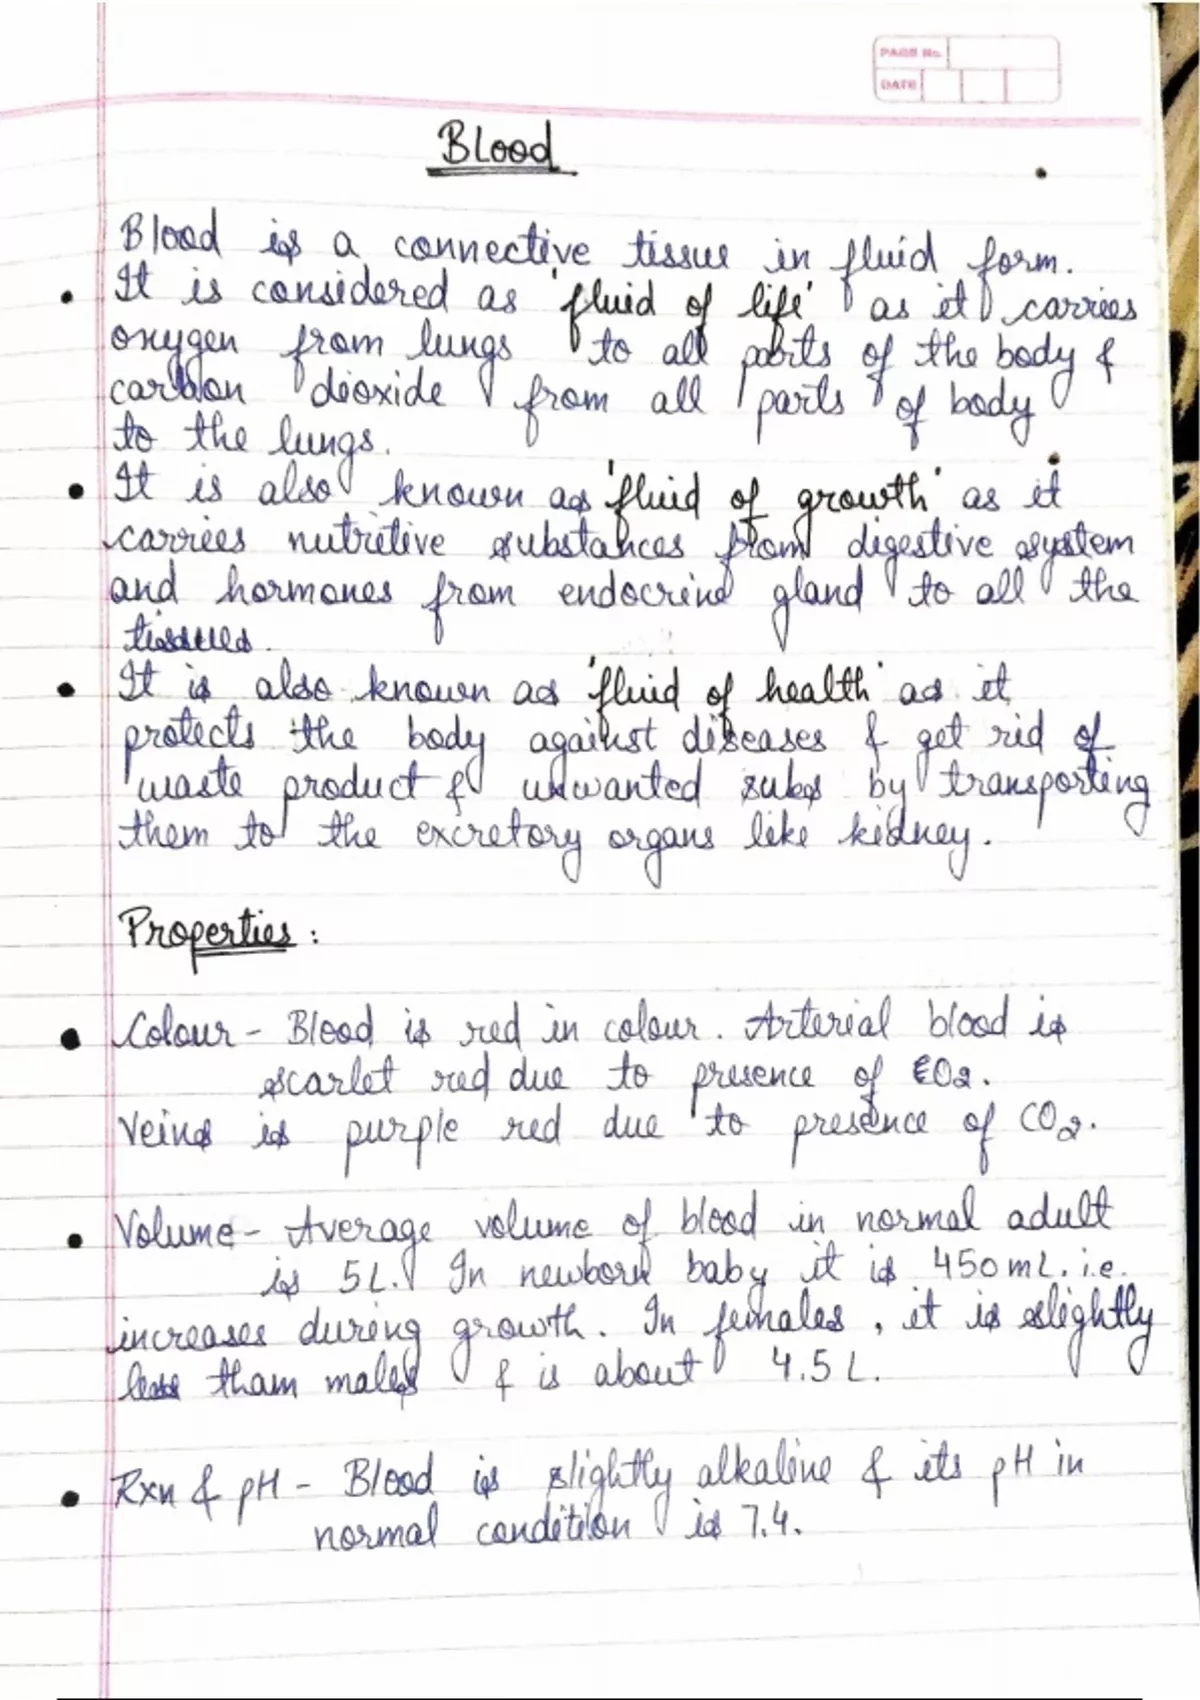 PAGE No.
DATE
Blood
Blood is a connective tissue in fluid form.
• It is considered as 'fluid of life' as it carries
oxygen from lungs to all parts of the body &
carbon dioxide from all parts of body
to the lungs.
• It is also known as 'fluid of growth' as it
carries nutritive substances from digestive system
and hormones from endocrine gland to all the
tissues.
• It is also known as 'fluid of health' as it
protects the body against diseases & get rid of
waste product & unwanted subs by transporting
them to the excretory organs like kidney.
Properties :
• Colour - Blood is red in colour. Arterial blood is
scarlet red due to presence of O2.
Veins is purple red due to presence of CO2.
• Volume - Average volume of blood in normal adult
is 5L. In newborn baby it is 450mL. i.e.
increases during growth. In females, it is slightly
less tham males & is about 4.5 L.
• Rxn & pH - Blood is slightly alkaline & its pH in
normal condition is 7.4.